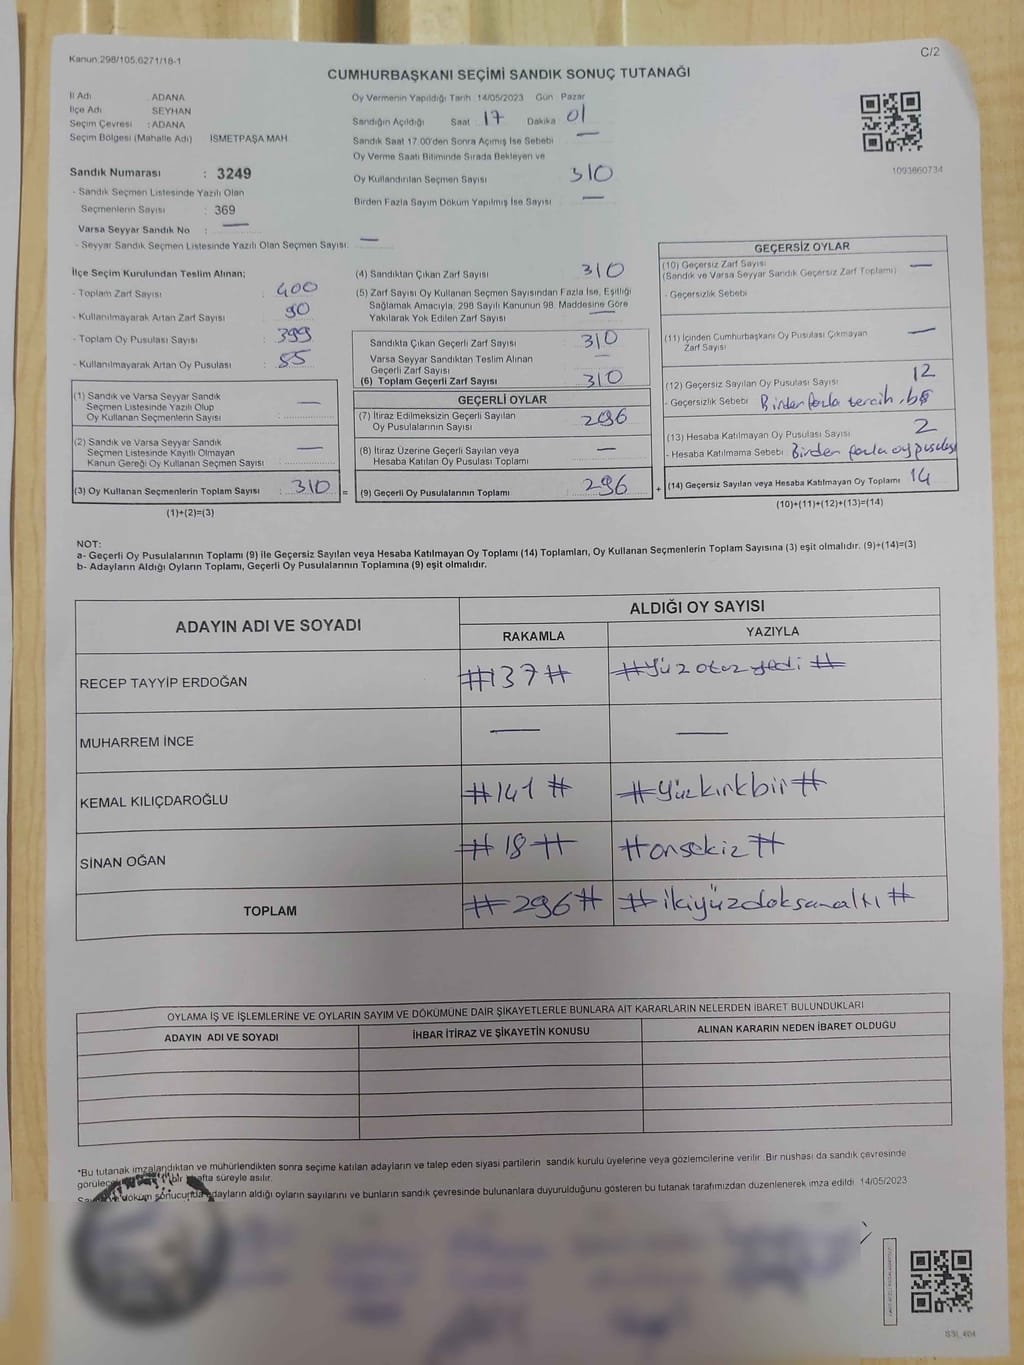 Kanun.298/105.6271/18-1
C/2
CUMHURBAŞKANI SEÇİMİ SANDIK SONUÇ TUTANAĞI
İl Adı : ADANA
İlçe Adı : SEYHAN
Seçim Çevresi : ADANA
Seçim Bölgesi (Mahalle Adı) İSMETPAŞA MAH.
Sandık Numarası : 3249
- Sandık Seçmen Listesinde Yazılı Olan
Seçmenlerin Sayısı : 369
Varsa Seyyar Sandık No : —
- Seyyar Sandık Seçmen Listesinde Yazılı Olan Seçmen Sayısı: —
Oy Vermenin Yapıldığı Tarih 14/05/2023 Gün Pazar
Sandığın Açıldığı Saat 17 Dakika 01
Sandık Saat 17.00'den Sonra Açımış İse Sebebi —
Oy Verme Saati Bitiminde Sırada Bekleyen ve
Oy Kullandırılan Seçmen Sayısı 310
Birden Fazla Sayım Döküm Yapılmış İse Sayısı —
1093860734
İlçe Seçim Kurulundan Teslim Alınan;
- Toplam Zarf Sayısı : 400
- Kullanılmayarak Artan Zarf Sayısı : 90
- Toplam Oy Pusulası Sayısı : 399
- Kullanılmayarak Artan Oy Pusulası : 85
(1) Sandık ve Varsa Seyyar Sandık
Seçmen Listesinde Yazılı Olup
Oy Kullanan Seçmenlerin Sayısı : —
(2) Sandık ve Varsa Seyyar Sandık
Seçmen Listesinde Kayıtlı Olmayan
Kanun Gereği Oy Kullanan Seçmen Sayısı : —
(3) Oy Kullanan Seçmenlerin Toplam Sayısı : 310 =
(1)+(2)=(3)
(4) Sandıktan Çıkan Zarf Sayısı 310
(5) Zarf Sayısı Oy Kullanan Seçmen Sayısından Fazla İse, Eşitliği
Sağlamak Amacıyla, 298 Sayılı Kanunun 98. Maddesine Göre
Yakılarak Yok Edilen Zarf Sayısı —
Sandıkta Çıkan Geçerli Zarf Sayısı 310
Varsa Seyyar Sandıktan Teslim Alınan
Geçerli Zarf Sayısı —
(6) Toplam Geçerli Zarf Sayısı 310
GEÇERLİ OYLAR
(7) İtiraz Edilmeksizin Geçerli Sayılan
Oy Pusulalarının Sayısı 296
(8) İtiraz Üzerine Geçerli Sayılan veya
Hesaba Katılan Oy Pusulası Toplamı —
(9) Geçerli Oy Pusulalarının Toplamı : 296 +
GEÇERSİZ OYLAR
(10) Geçersiz Zarf Sayısı —
(Sandık ve Varsa Seyyar Sandık Geçersiz Zarf Toplamı)
- Geçersizlik Sebebi
(11) İçinden Cumhurbaşkanı Oy Pusulası Çıkmayan
Zarf Sayısı —
(12) Geçersiz Sayılan Oy Pusulası Sayısı 12
- Geçersizlik Sebebi Birden fazla tercih,
(13) Hesaba Katılmayan Oy Pusulası Sayısı 2
- Hesaba Katılmama Sebebi Birden fazla oy pusulası
(14) Geçersiz Sayılan veya Hesaba Katılmayan Oy Toplamı 14
(10)+(11)+(12)+(13)=(14)
NOT:
a- Geçerli Oy Pusulalarının Toplamı (9) ile Geçersiz Sayılan veya Hesaba Katılmayan Oy Toplamı (14) Toplamları, Oy Kullanan Seçmenlerin Toplam Sayısına (3) eşit olmalıdır. (9)+(14)=(3)
b- Adayların Aldığı Oyların Toplamı, Geçerli Oy Pusulalarının Toplamına (9) eşit olmalıdır.
ADAYIN ADI VE SOYADI ALDIĞI OY SAYISI
RAKAMLA YAZIYLA
RECEP TAYYİP ERDOĞAN #137# #Yüz otuz yedi#
MUHARREM İNCE — —
KEMAL KILIÇDAROĞLU #141# #Yüzkırkbir#
SİNAN OĞAN #18# #onsekiz#
TOPLAM #296# #ikiyüzdoksanaltı#
OYLAMA İŞ VE İŞLEMLERİNE VE OYLARIN SAYIM VE DÖKÜMÜNE DAİR ŞİKAYETLERLE BUNLARA AİT KARARLARIN NELERDEN İBARET BULUNDUKLARI
ADAYIN ADI VE SOYADI İHBAR İTİRAZ VE ŞİKAYETİN KONUSU ALINAN KARARIN NEDEN İBARET OLDUĞU
*Bu tutanak imzalandıktan ve mühürlendikten sonra seçime katılan adayların ve talep eden siyasi partilerin sandık kurulu üyelerine veya gözlemcilerine verilir. Bir nüshası da sandık çevresinde
bir hafta süreyle asılır.
döküm sonucunda adayların aldığı oyların sayılarını ve bunların sandık çevresinde bulunanlara duyurulduğunu gösteren bu tutanak tarafımızdan düzenlenerek imza edildi. 14/05/2023